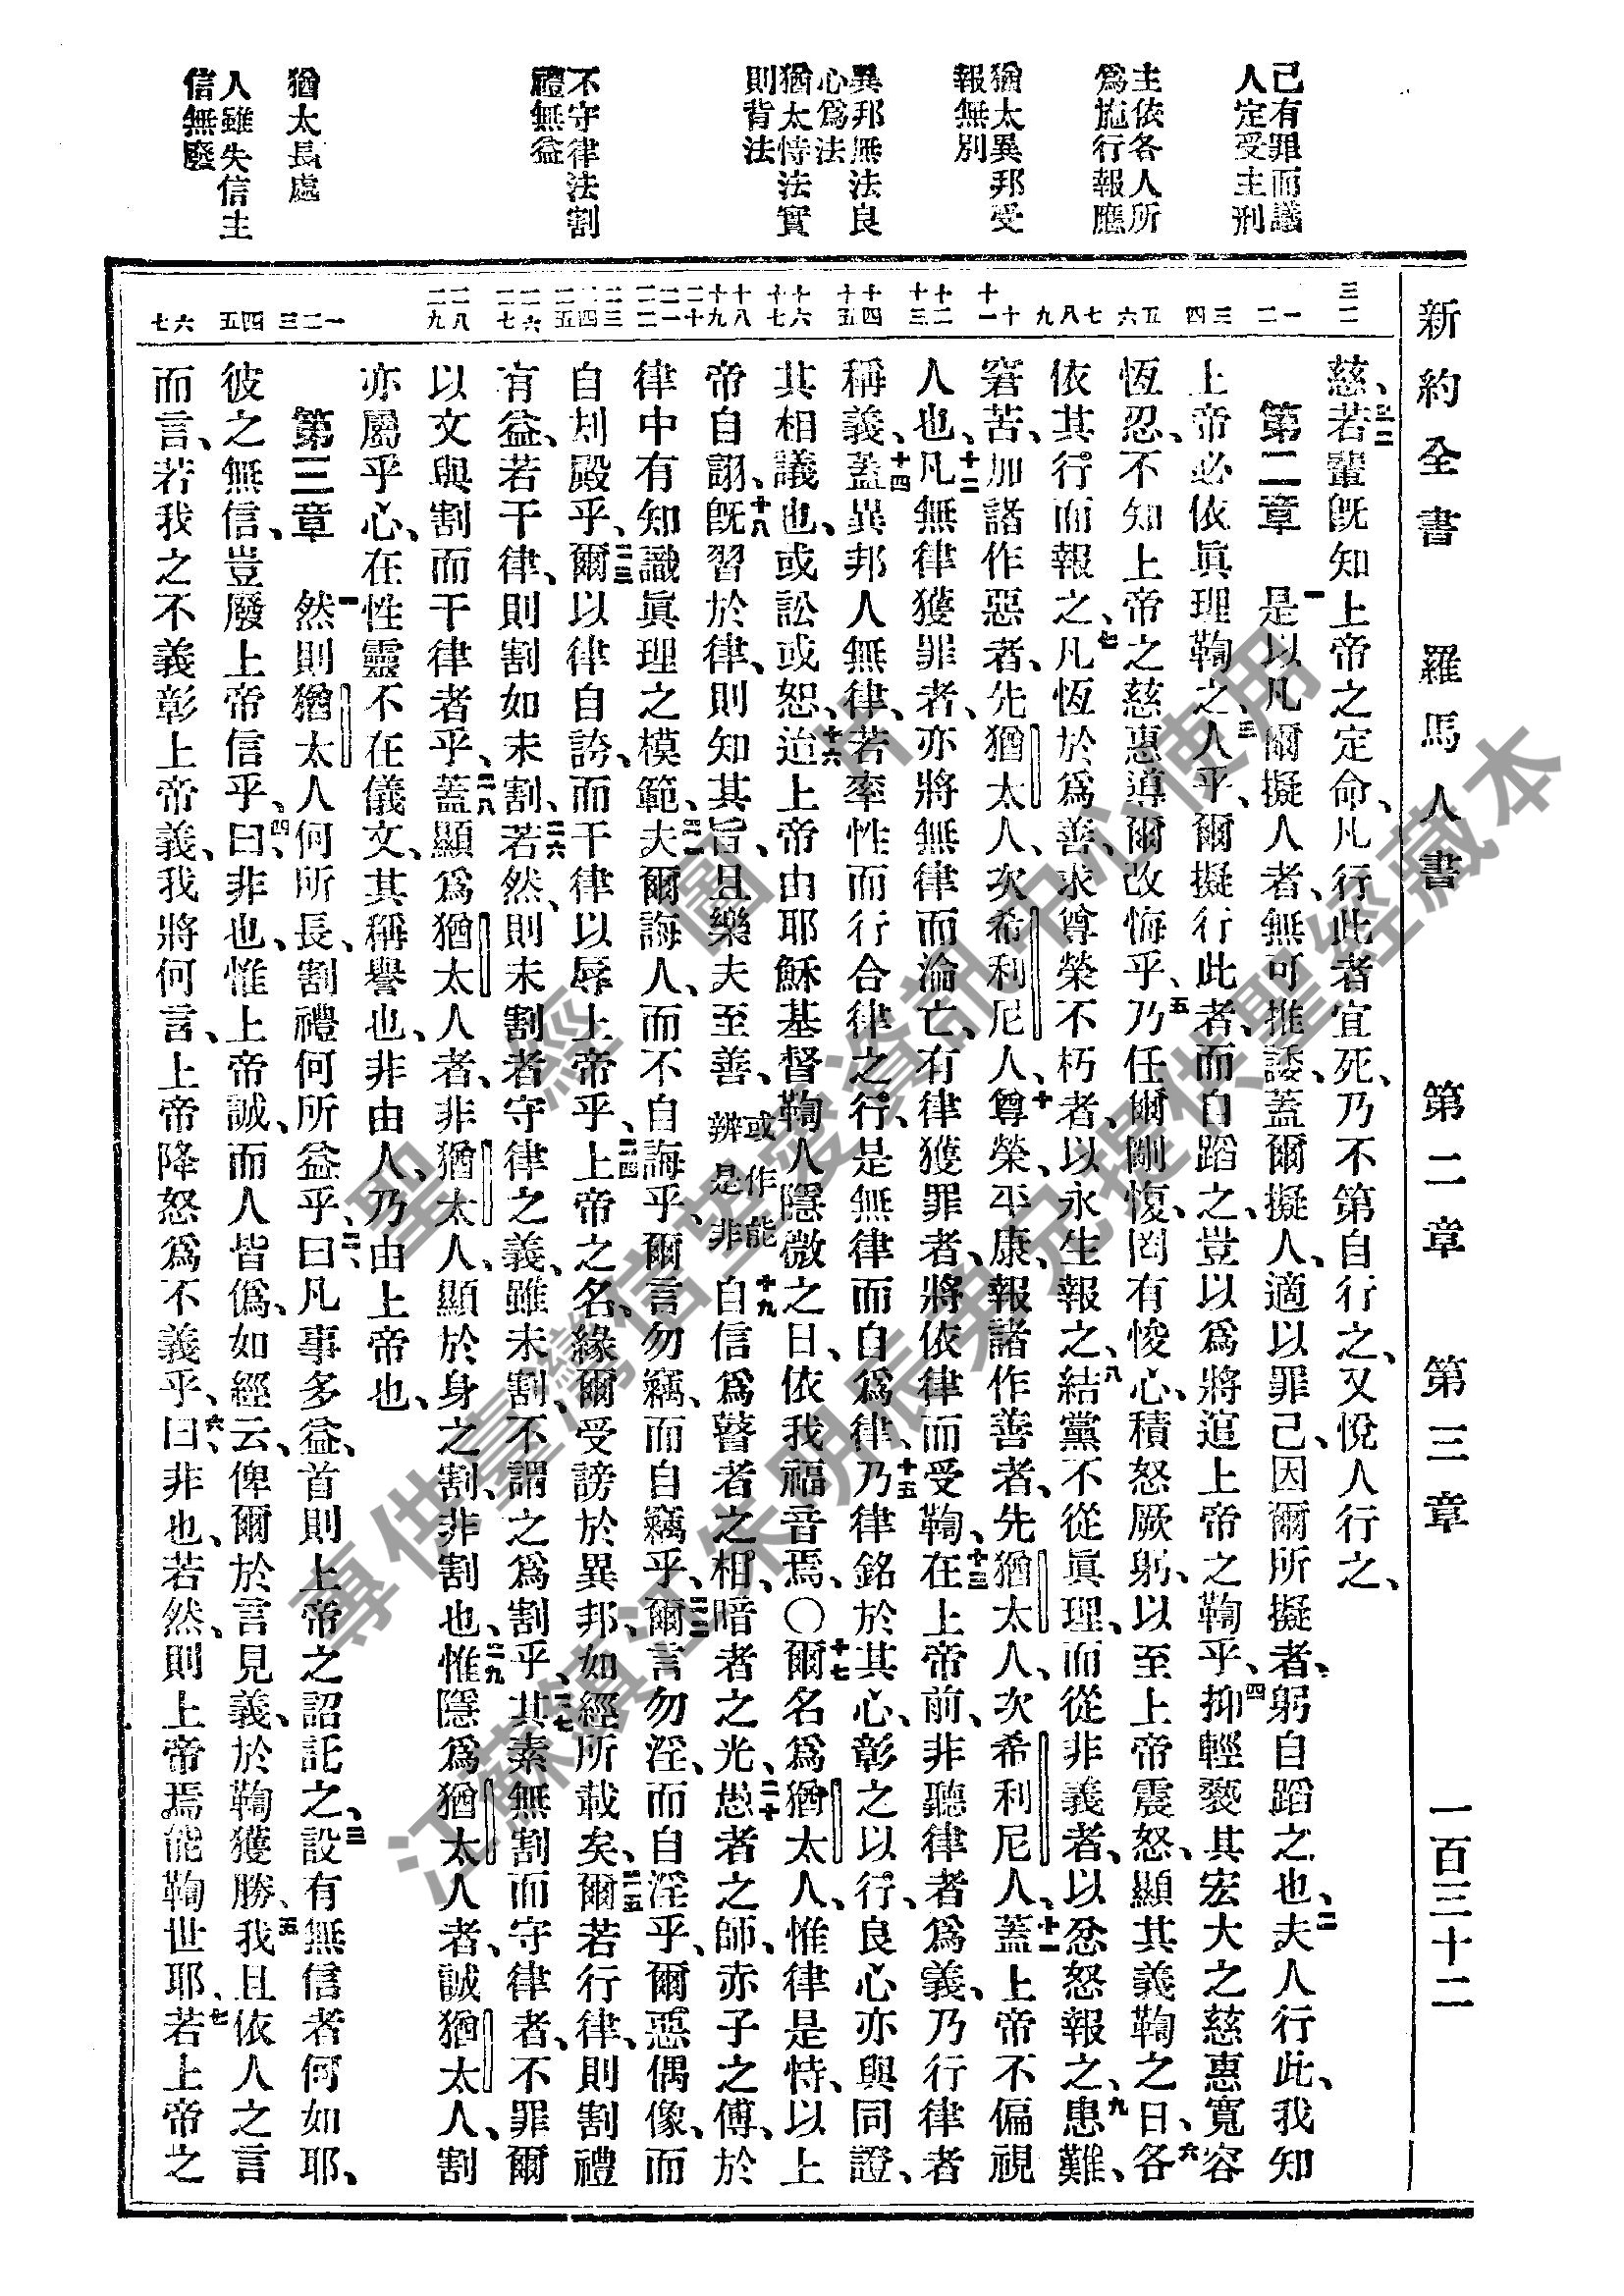 新約全書　羅馬人書　第二章　第三章　一百三十二
己有罪而議
人定受主刑
主依各人所
爲施行報應
猶太異邦受
報無別
異邦無法良
心爲法
猶太恃法實
則背法
不守律法割
禮無益
猶太長處
人雖失信主
信無廢
三二
一
二
三
四
五
六
七
八
九
十
十一
十二
十三
十四
十五
十六
十七
十八
十九
二十
二一
二二
二三
二四
二五
二六
二七
二八
二九
一
二
三
四
五
六
七
慈、三二若輩旣知上帝之定命、凡行此者宜死、乃不第自行之、又悅人行之、
第二章　一是以凡爾擬人者、無可推諉、蓋爾擬人、適以罪己、因爾所擬者、躬自蹈之也、二夫人行此、我知
上帝必依眞理鞫之、三人乎、爾擬行此者、而自蹈之、豈以爲將逭上帝之鞫乎、四抑輕褻其宏大之慈惠寬容
恆忍、不知上帝之慈惠導爾改悔乎、五乃任爾剛愎、罔有悛心、積怒厥躬、以至上帝震怒、顯其義鞫之日、六各
依其行而報之、七凡恆於爲善、求尊榮不朽者、以永生報之、八結黨不從眞理、而從非義者、以忿怒報之、九患難、
窘苦、加諸作惡者、先猶太人、次希利尼人、十尊榮、平康、報諸作善者、先猶太人、次希利尼人、十一蓋上帝不偏視
人也、十二凡無律獲罪者、亦將無律而淪亡、有律獲罪者、將依律而受鞫、十三在上帝前、非聽律者爲義、乃行律者
稱義、十四蓋異邦人無律、若率性而行合律之行、是無律而自爲律、十五乃律銘於其心、彰之以行、良心亦與同證、
其相議也、或訟或恕、十六迨上帝由耶穌基督鞫人隱微之日、依我福音焉、〇十七爾名爲猶太人、惟律是恃、以上
帝自詡、十八旣習於律、則知其旨、且樂夫至善、或作能辨是非十九自信爲瞽者之相、暗者之光、二十愚者之師、赤子之傅、於
律中有知識眞理之模範、二一夫爾誨人、而不自誨乎、爾言勿竊、而自竊乎、二二爾言勿淫、而自淫乎、爾惡偶像、而
自刦殿乎、二三爾以律自誇、而干律以辱上帝乎、二四上帝之名、緣爾受謗於異邦、如經所載矣、二五爾若行律、則割禮
有益、若干律、則割如未割、二六若然、則未割者守律之義、雖未割、不謂之爲割乎、二七其素無割而守律者、不罪爾
以文與割而干律者乎、二八蓋顯爲猶太人者、非猶太人、顯於身之割、非割也、二九惟隱爲猶太人者、誠猶太人、割
亦屬乎心、在性靈不在儀文、其稱譽也、非由人、乃由上帝也、
第三章　一然則猶太人何所長、割禮何所益乎、二曰、凡事多益、首則上帝之詔託之、三設有無信者何如耶、
彼之無信、豈廢上帝信乎、四曰、非也、惟上帝誠、而人皆僞、如經云、俾爾於言見義、於鞫獲勝、五我且依人之言
而言、若我之不義彰上帝義、我將何言、上帝降怒爲不義乎、六曰、非也、若然、則上帝焉能鞫世耶、七若上帝之
聖經圖片
專供臺灣信望愛資訊中心使用
江蘇鎮江朱明辰弟兄提供聖經藏本